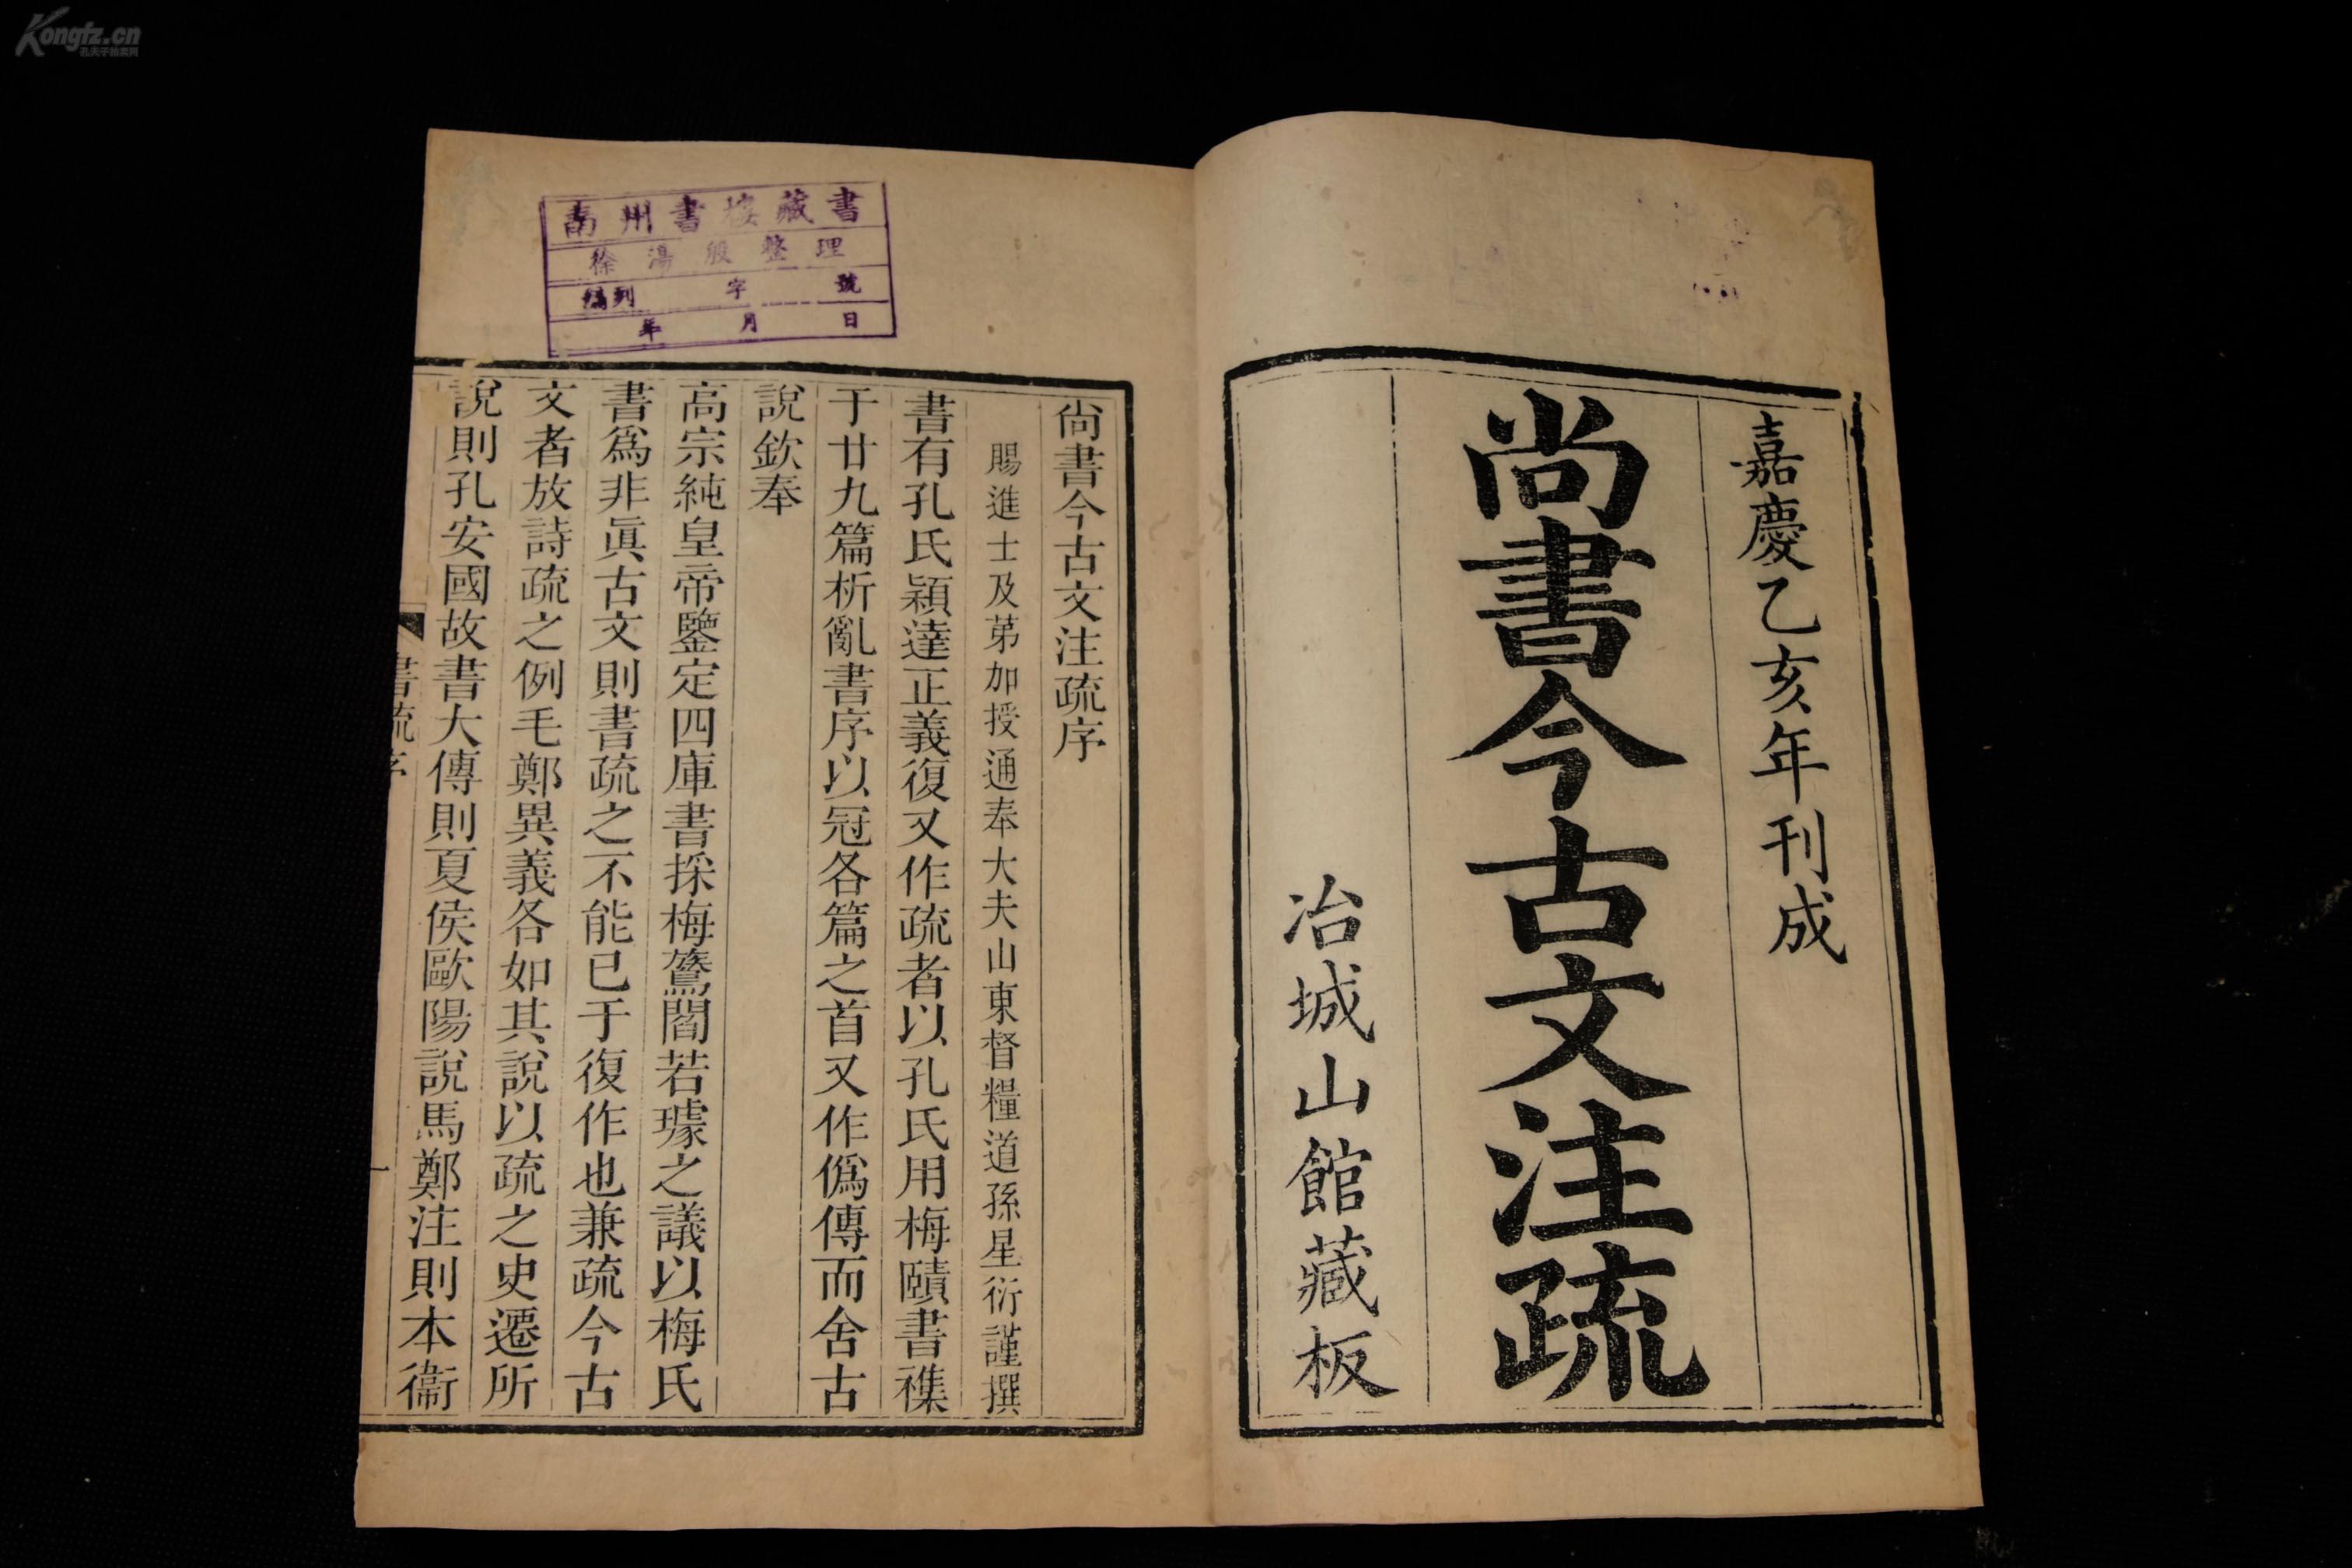 嘉慶乙亥年刊成
尚書今古文注疏
冶城山館藏板
書樓藏書
徐湯殷整理
編列 字 號
年 月 日
尙書今古文注疏序
賜進士及苐加授通奉大夫山東督糧道孫星衍謹撰
書有孔氏穎達正義復又作疏者以孔氏用梅賾書襍
于廿九篇析亂書序以冠各篇之首又作僞傳而舍古
說欽奉
高宗純皇帝鑒定四庫書採梅鷟閻若璩之議以梅氏
書爲非眞古文則書疏之不能已于復作也兼疏今古
文者放詩疏之例毛鄭異義各如其說以疏之史遷所
說則孔安國故書大傳則夏侯歐陽說馬鄭注則本衞
書疏序
一
Kongfz.cn